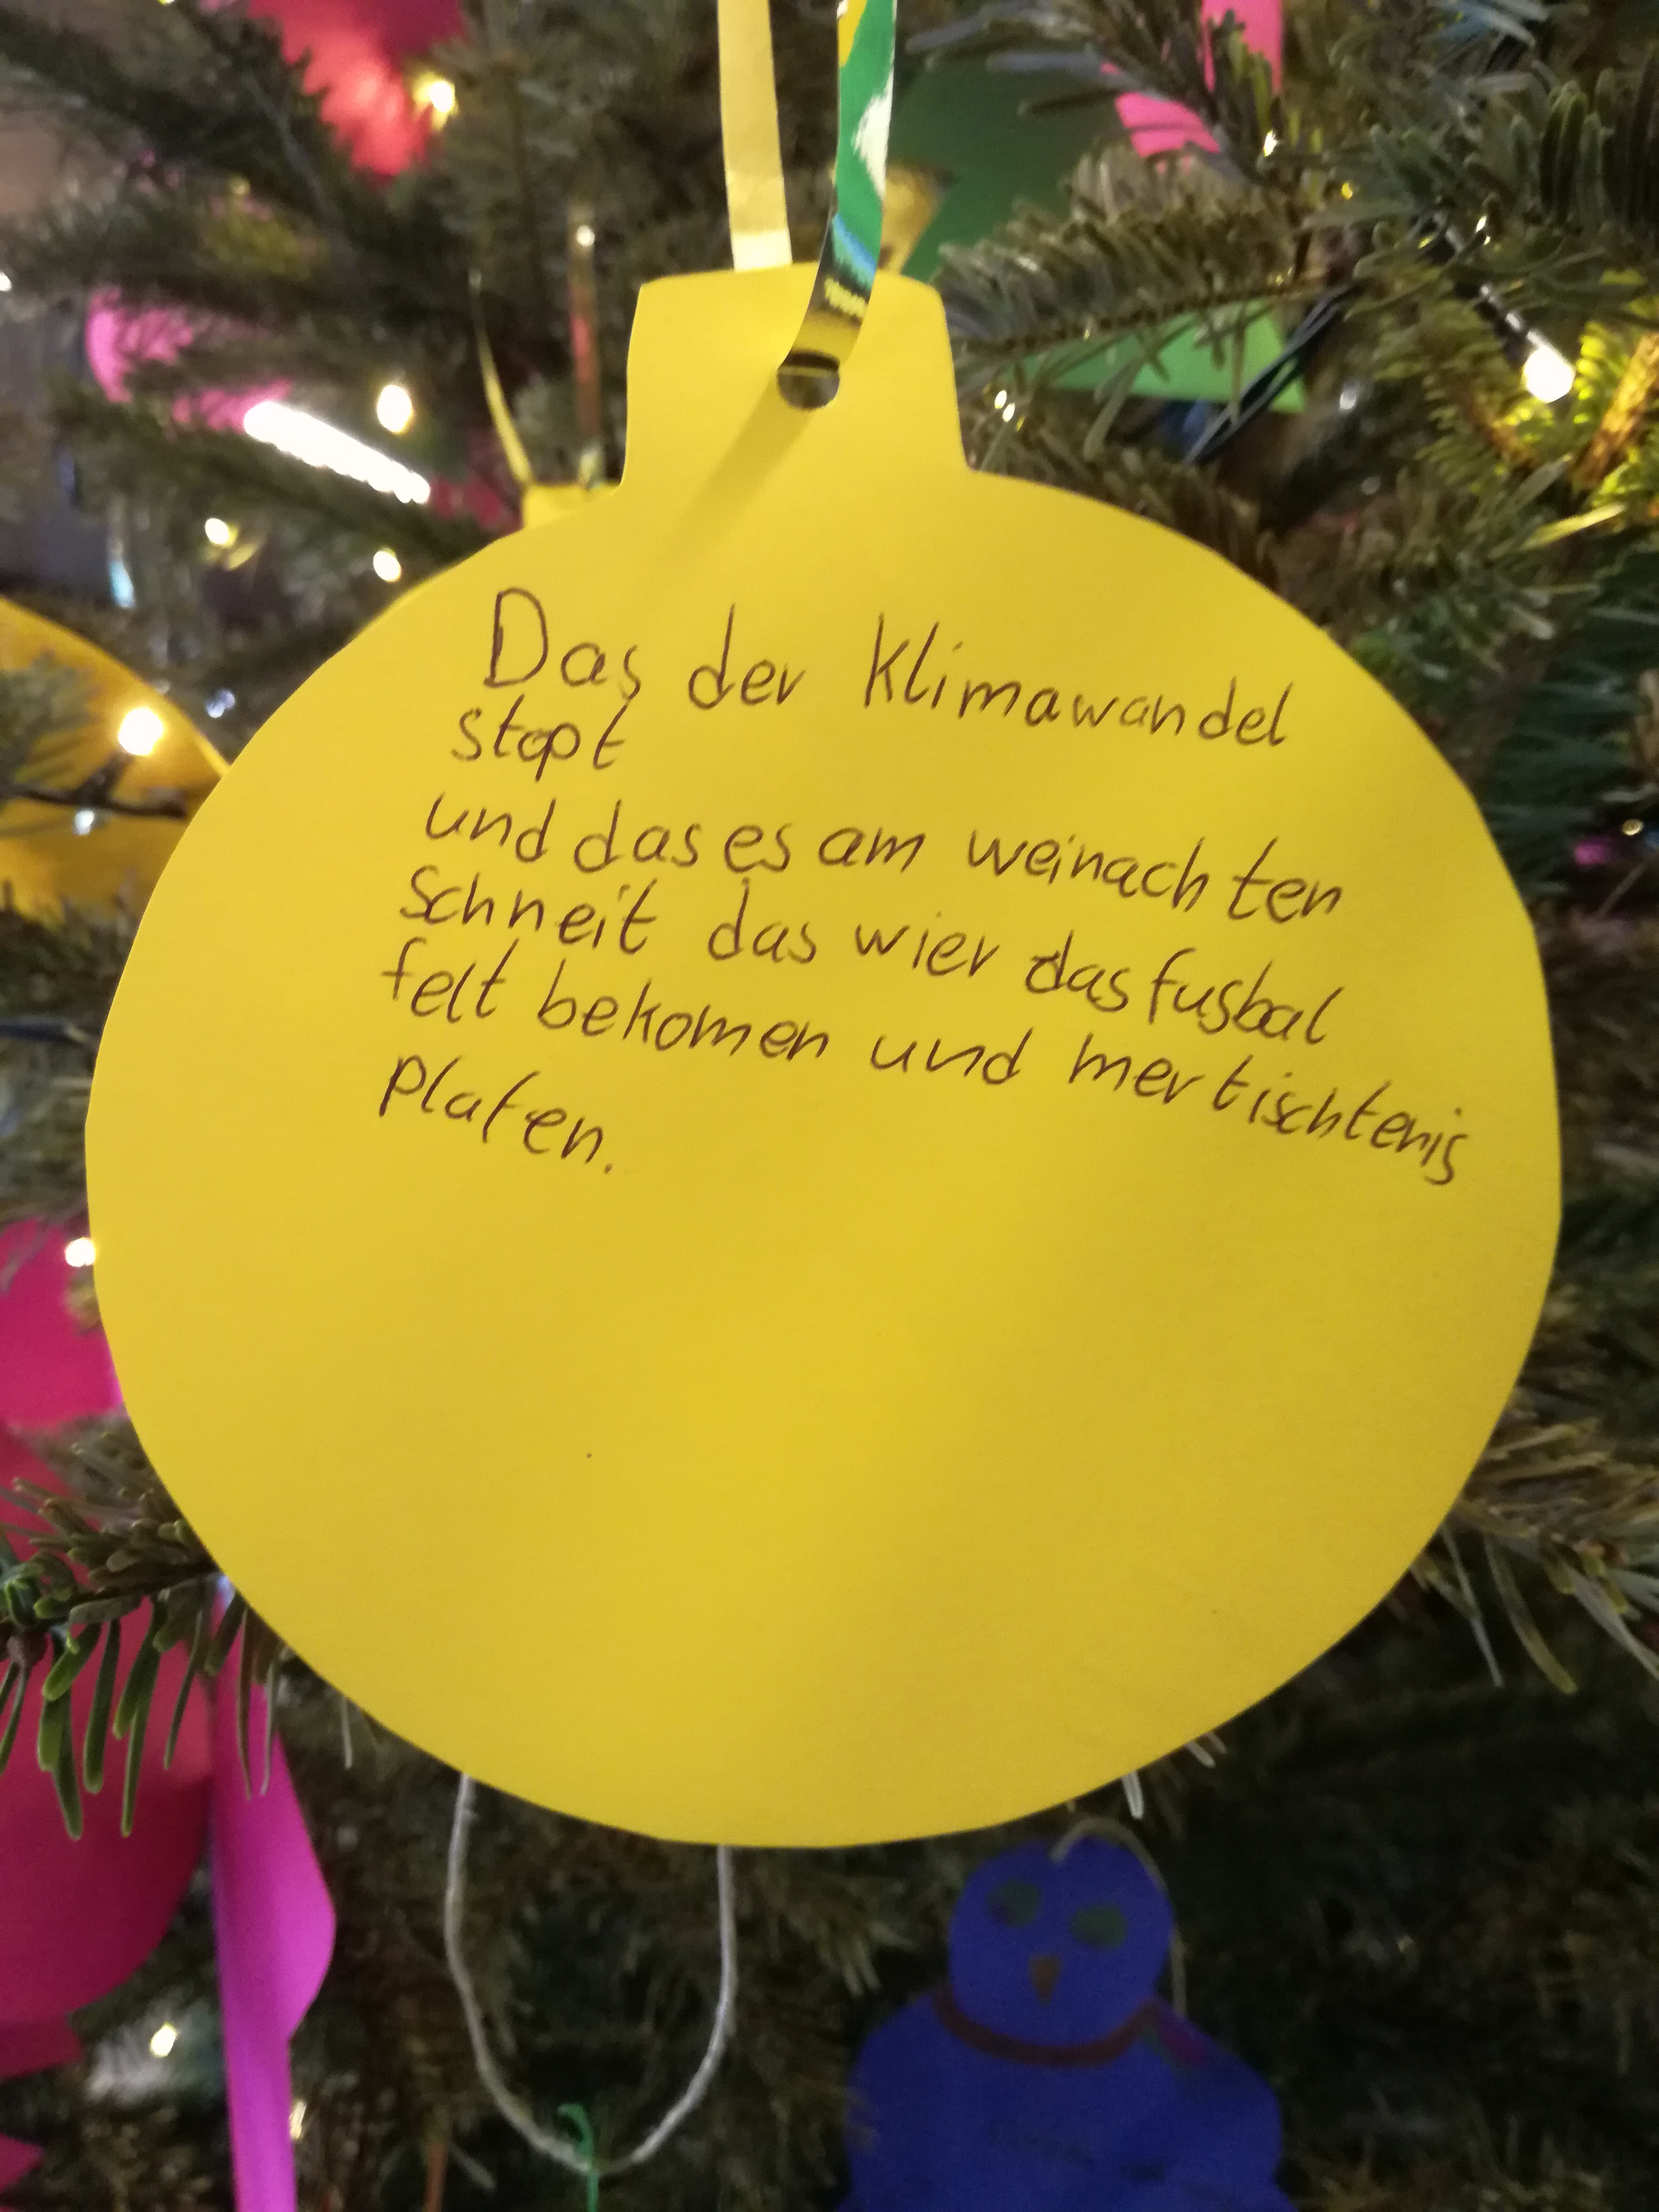 Das der Klimawandel
stopt
und das es am weinachten
Schneit das wier das fusbal
felt bekomen und mer tischtenis
Platen.